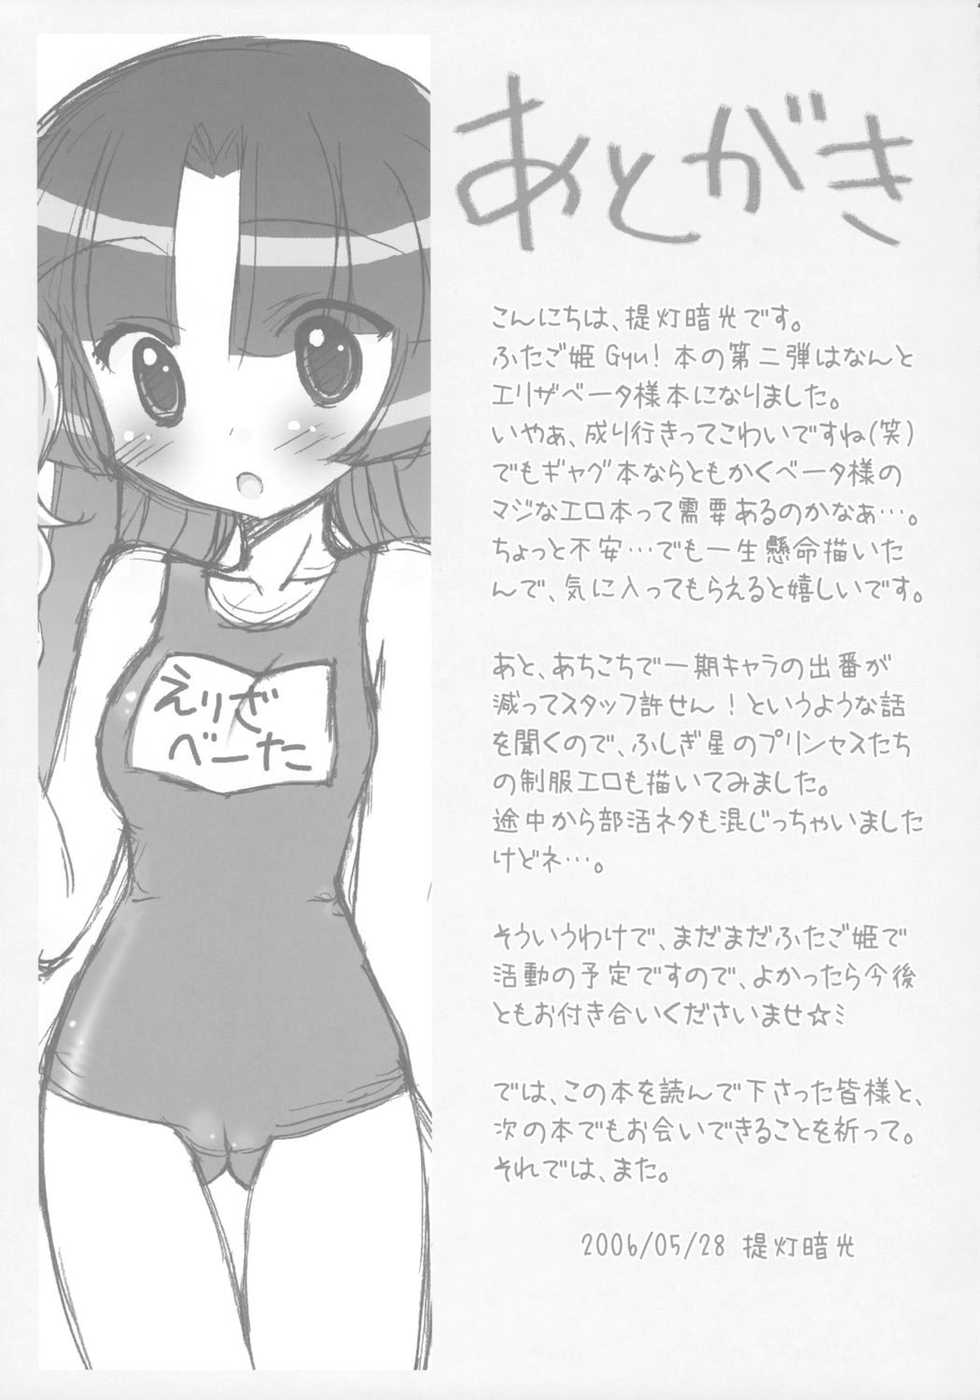 あとがき
えりざ
べーた
こんにちは、提灯暗光です。
ふたご姫Gyu!本の第二弾はなんと
エリザベータ様本になりました。
いやぁ、成り行きってこわいですね(笑)
でもギャグ本ならともかくベータ様の
マジなエロ本って需要あるのかなぁ…。
ちょっと不安…でも一生懸命描いた
んで、気に入ってもらえると嬉しいです。
あと、あちこちで一期キャラの出番が
減ってスタッフ許せん!というような話
を聞くので、ふしぎ星のプリンセスたち
の制服エロも描いてみました。
途中から部活ネタも混じっちゃいました
けどネ…。
そういうわけで、まだまだふたご姫で
活動の予定ですので、よかったら今後
ともお付き合いくださいませ☆ミ
では、この本を読んで下さった皆様と、
次の本でもお会いできることを祈って。
それでは、また。
2006/05/28 提灯暗光